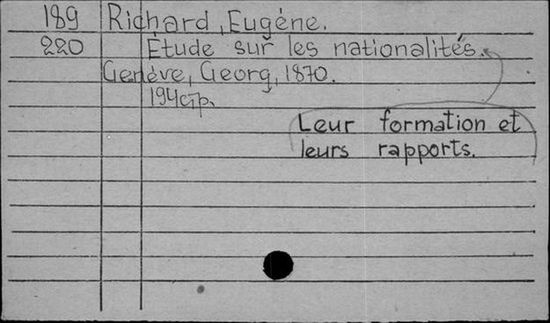 189 Richard, Eugène.
220 Étude sur les nationalités.
Genève, Georg, 1870.
194 стр.
Leur formation et
leurs rapports.